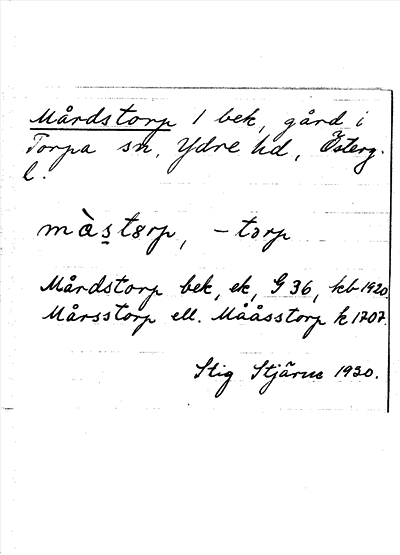 Mårdstorp 1 bek, gård i
Torpa sn. Ydre hd, Österg.
l.
mà̱st8rp, -torp
Mårdstorp bek, ek, G 36, kb 1920
Mårsstorp ell. Måås̈storp k 1707.
Stig Stjärne 1930.